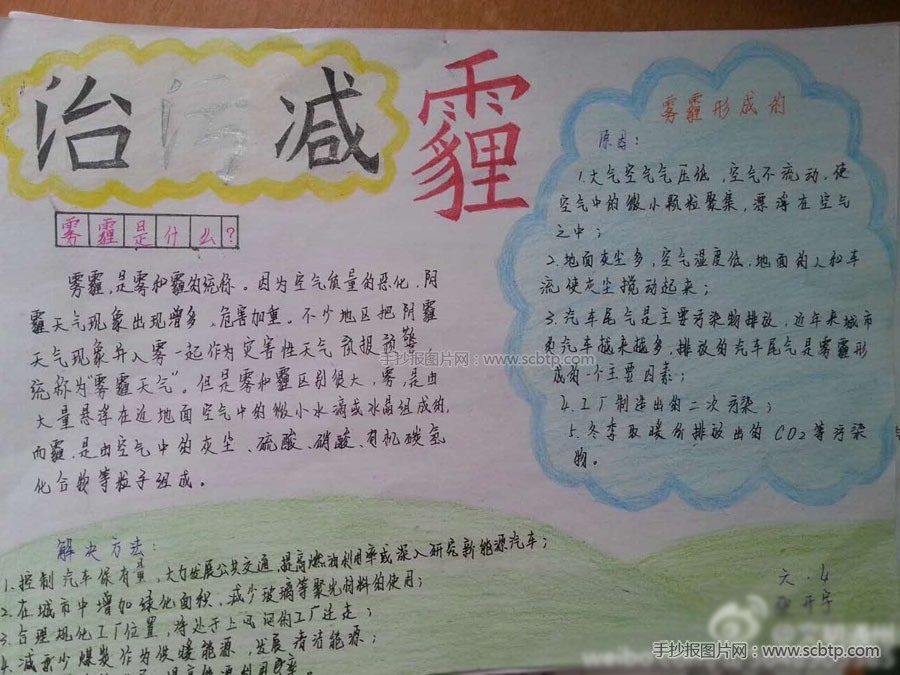 治污减霾
雾霾是什么?
雾霾,是雾和霾的统称。因为空气质量的恶化,阴
霾天气现象出现增多,危害加重。不少地区把阴霾
天气现象并入雾一起作为灾害性天气预报预警,
统称为“雾霾天气”。但是雾和霾区别很大,雾,是由
大量悬浮在近地面空气中的微小水滴或冰晶组成的,
而霾,是由空气中的灰尘、硫酸、硝酸、有机碳氢
化合物等粒子组成。
雾霾形成的
原因:
1.大气空气气压低,空气不流动,使
空气中的微小颗粒聚集,漂浮在空气
之中;
2.地面灰尘多,空气湿度低,地面的人和车
流使灰尘搅动起来;
3.汽车尾气是主要污染物排放,近年来城市
的汽车越来越多,排放的汽车尾气是雾霾形
成的一个主要因素;
4.工厂制造出的二次污染;
5.冬季取暖所排放出的CO2等污染
物。
解决方法:
1.控制汽车保有量,大力发展公共交通,提高燃油利用率或深入研究新能源汽车;
2.在城市中增加绿化面积,减少玻璃等聚光材料的使用;
3.合理规化工厂位置,将处于上风问的工厂迁走;
4.减少煤炭作为供暖能源,发展清洁能源;
六.4
开宇
手抄报图片网:www.scbtp.com
手抄报图片网:www.scbtp.com